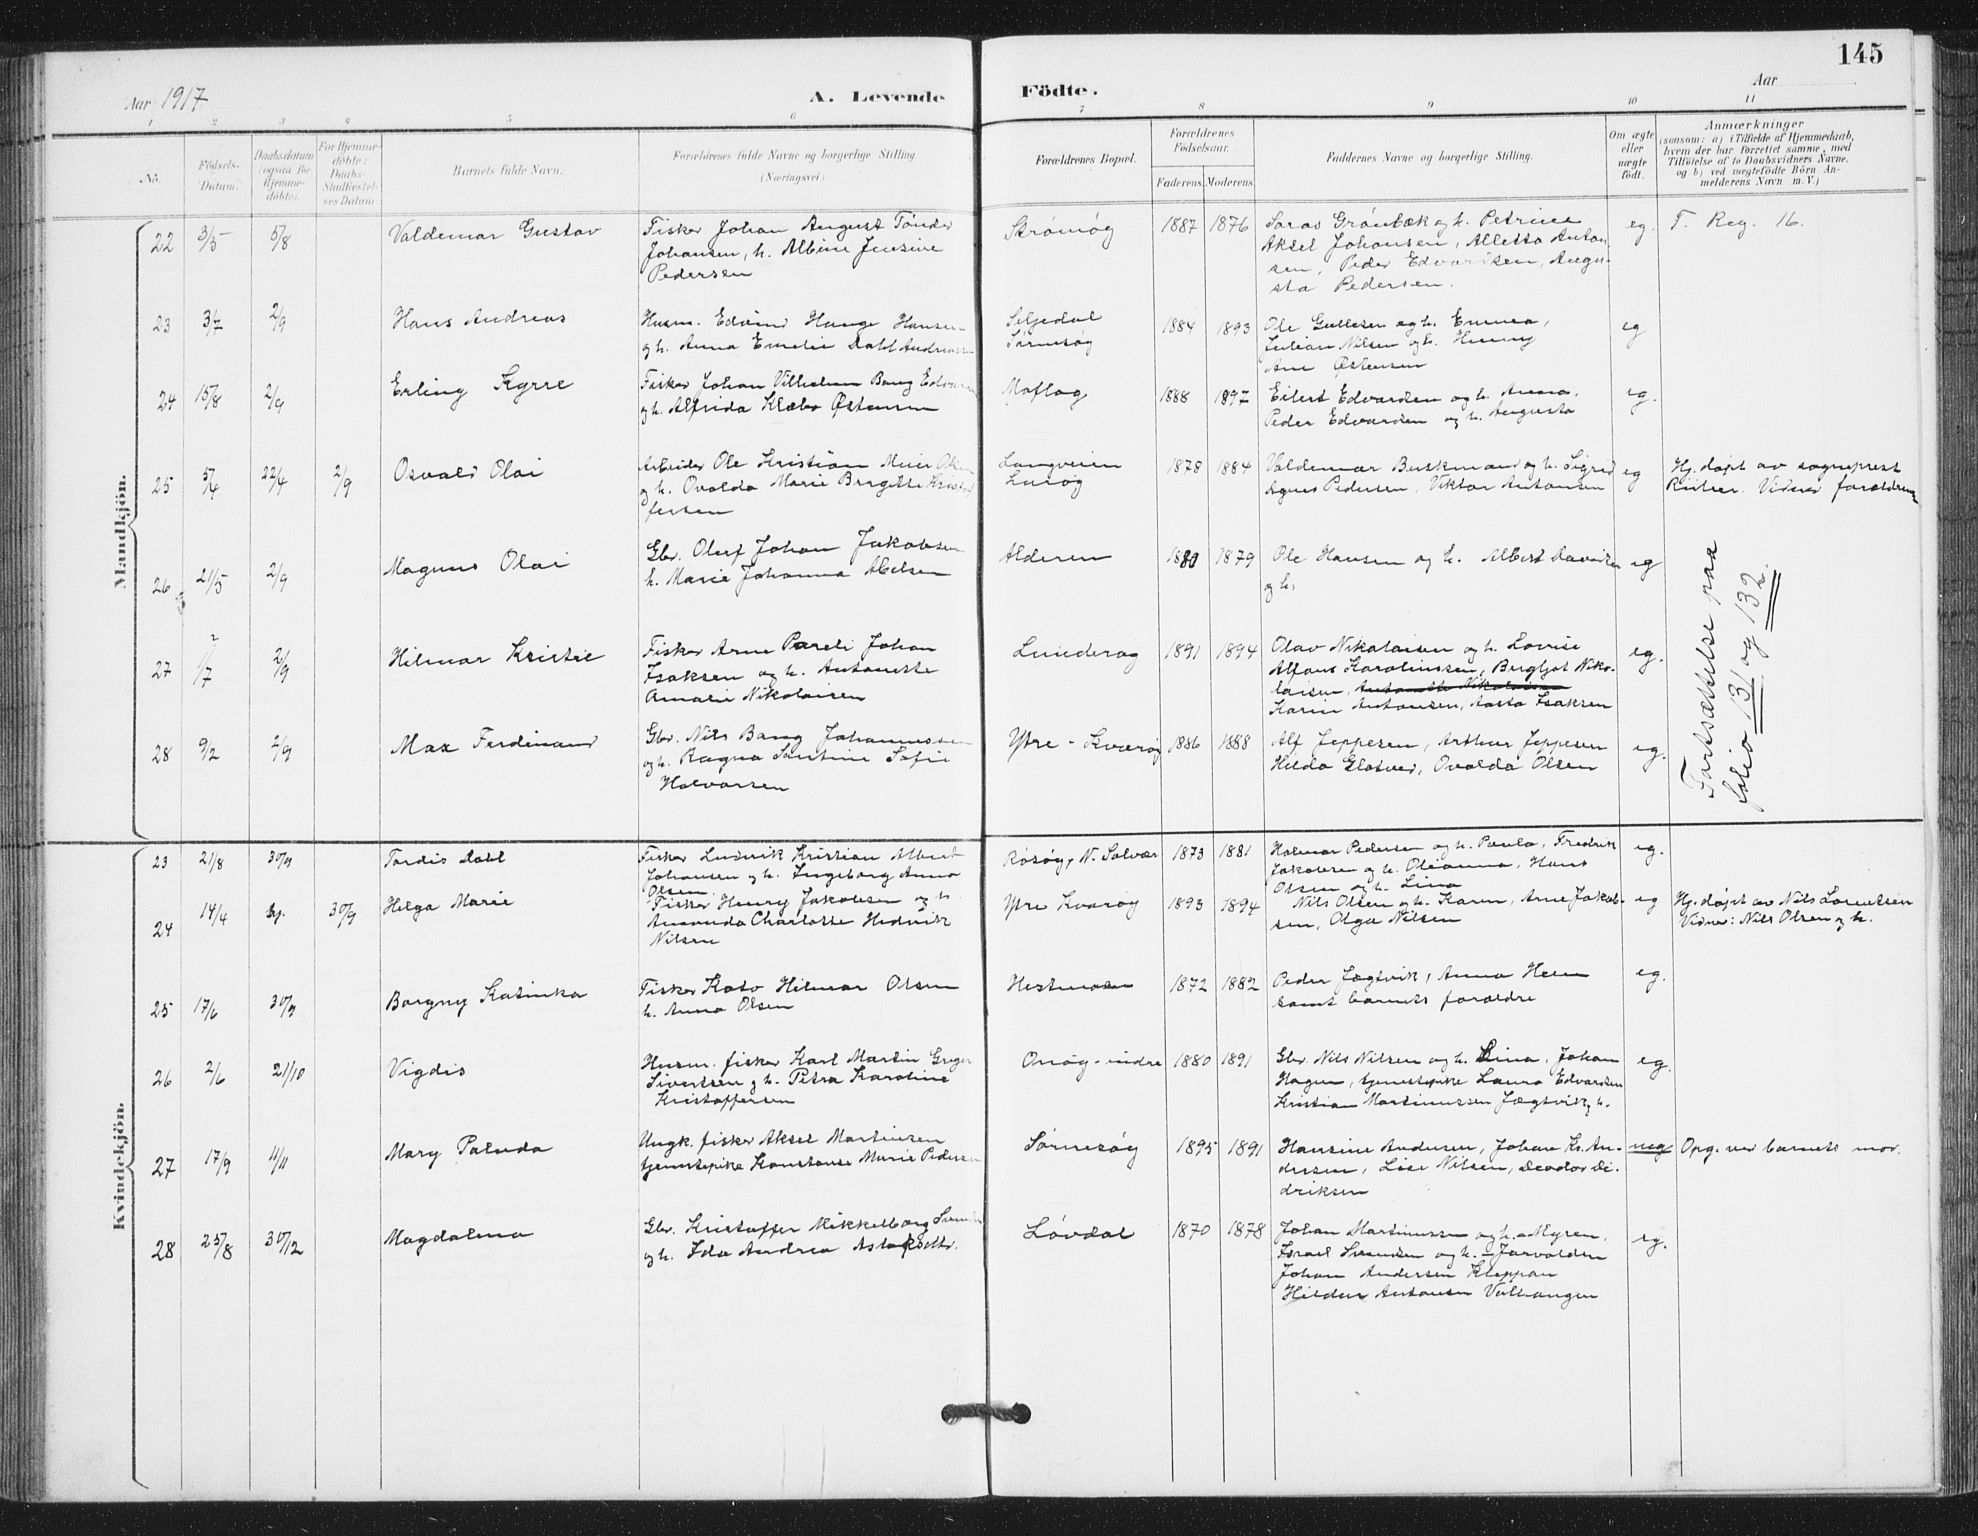 145
Aar 1917
A. Levende Födte.
Aar
1 2 3 4 5 6 7 8 9 10 11
No.
Födsels-Datum.
Daabsdatum (ogsaa for Hjemme-döbte).
For Hjemme-döbte: Daabs-Stadfæstel-ses Datum
Barnets fulde Navn.
Forældrenes fulde Navne og borgerlige Stilling.
(Næringsvei.)
Forældrenes Bopæl.
Forældrenes Födselsaar.
Faderens. Moderens.
Faddernes Navne og borgerlige Stilling.
Om ægte eller uægte födt.
Anmærkninger
(saasom: a) i Tilfælde af Hjemmedaab,
hvem der har forrettet samme, med
Tilföielse af to Daabsvidners Navne.
og b) ved uægtefödte Börn An-
melderens Navn m. V.)
Mandkjön.
22 3/5 5/8 Valdemar Gustav
Fisker Johan August Tönder
Johansen, h. Albine Jensine
Pedersen
Strömöy 1887 1876
Grönbæk og h. Petrine
Aksel Johansen, Alletta Anton-
sen, Peder Edvardsen, Augu-
sta Pedersen.
eg. T. Reg. 16.
23 3/7 2/9 Hans Andreas
Husm. Edvind Hauge Hansen
og h. Anna Emelie Dahl Andreassen
Seljedal
Sörnesöy
1884 1893
Ole Gullesen og h. Emma,
Julian Nilsen og h. Henny
Ane Østensen
eg
24 15/8 2/9 Erling Kyrre
Fisker Johan Vilhelm Bang Edvardsen
og h. Alfrida Klæbo Østensen
Moflag 1888 1897
Eilert Edvardsen og h. Anna,
Peder Edvardsen og h. Augusta
eg.
25 5/4 22/4 2/9 Osvald Olai
Arbeider Ole Kristian Meier Olsen
og h. Ovalda Marie Birgitte Kristof
fersen
Langveien
Luröy
1878 1884
Valdemar Buskmand og h. Sigrid
Agnes Pedersen, Viktor Antonsen
eg
Hj. døpt av sogneprest
Vidner forældrene
26 21/5 2/9 Magnus Olai
Gbr. Oluf Johan Jakobsen
h. Marie Johanna Abelsen
Alderen 1880 1879
Ole Hansen og h. Albert Davidsen
og h.
eg
27 2/7 2/9 Hilmar Kristie
Fisker Arne Pareli Johan
Isaksen og h. Antonette
Amalie Nikolaisen
Lunderøy 1891 1894
Olav Nikolaisen og h. Lovise
Alfons Karolinssen, Bergljot Niko-
laisen, Antonette Nikolaisen
Karin Antonsen, Aasta Isaksen
eg.
28 9/2 2/9 Max Ferdinand
Gbr. Nils Bang Johannessen
og h. Ragna Santine Sofie
Halvorsen
Ytre-Kvarøy 1886 1888
Alf Jeppesen, Arthur Jeppesen
Hilda Glosver, Ovalda Olsen
eg.
Fortsættelse paa
folio 131 og 132.
Kvindekjön.
23 21/8 30/9 Tordis Dahl
Fisker Ludvik Kristian Albert
Johansen og h. Ingeborg Anna
Olsen.
Rosöy, N. Solvær 1873 1881
Holmar Pedersen og h. Paula, Fredrik
Jakobsen og h. Oleanna, Hans
Olsen og h. Lina
eg.
24 14/4 hj. 30/9 Helga Marie
Fisker Henry Jakobsen og h.
Amanda Charlotte Hedevik
Nilsen
Ytre Kvarøy 1893 1894
Nils Olsen og h. Karen, Arne Jakob-
sen, Olga Nilsen
eg
Hj. døpt av Nils Lorentsen
Vidner: Nils Olsen og h.
25 17/6 30/9 Borgny Katinka
Fisker Kato Hilmar Olsen
h. Anna Olsen
Hestmoen 1872 1882
Peder Jægtvik, Anna Heen
samt barnets forældre
eg.
26 2/6 21/10 Vigdis
Husm. fisker Karl Martin Greger
Sivertsen og h. Petra Karoline
Kristoffersen
Onøy-indre 1880 1891
Gbr. Nils Nilsen og h. Lina, Johan
Hagen, tjenestepike Laura Edvardsen
Kristian Martinussen Jægtvik og h.
eg.
27 17/9 11/11 Mary Paluda
Ungk. fisker Aksel Martinsen
tjenestepike Konstanse Marie Pedersen
Sørnesøy 1895 1891
Hansine Andersen, Johan Kr. An-
dersen, Lise Nilsen, Deodor Di-
driksen
ueg Opg. ved barnets mor.
28 25/8 30/12 Magdalena
Gbr. Kristoffer Mikkelborg Svendsen
og h. Ida Andrea Aslaksdtr.
Løvdal 1870 1878
Johan Martinussen og h. - Myren,
Israel Svendsen og h. - Jarvolden
Johan Andersen Kleppan
Hildur Antonsen Valhaugen
eg.